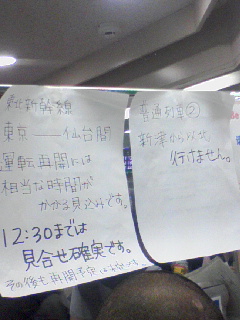 新幹線
東京――仙台間
運転再開には
相当な時間が
かかる見込みです。
12:30までは
見合せ確実です。
その後も再開予定は
普通列車②
新津から
行けません。